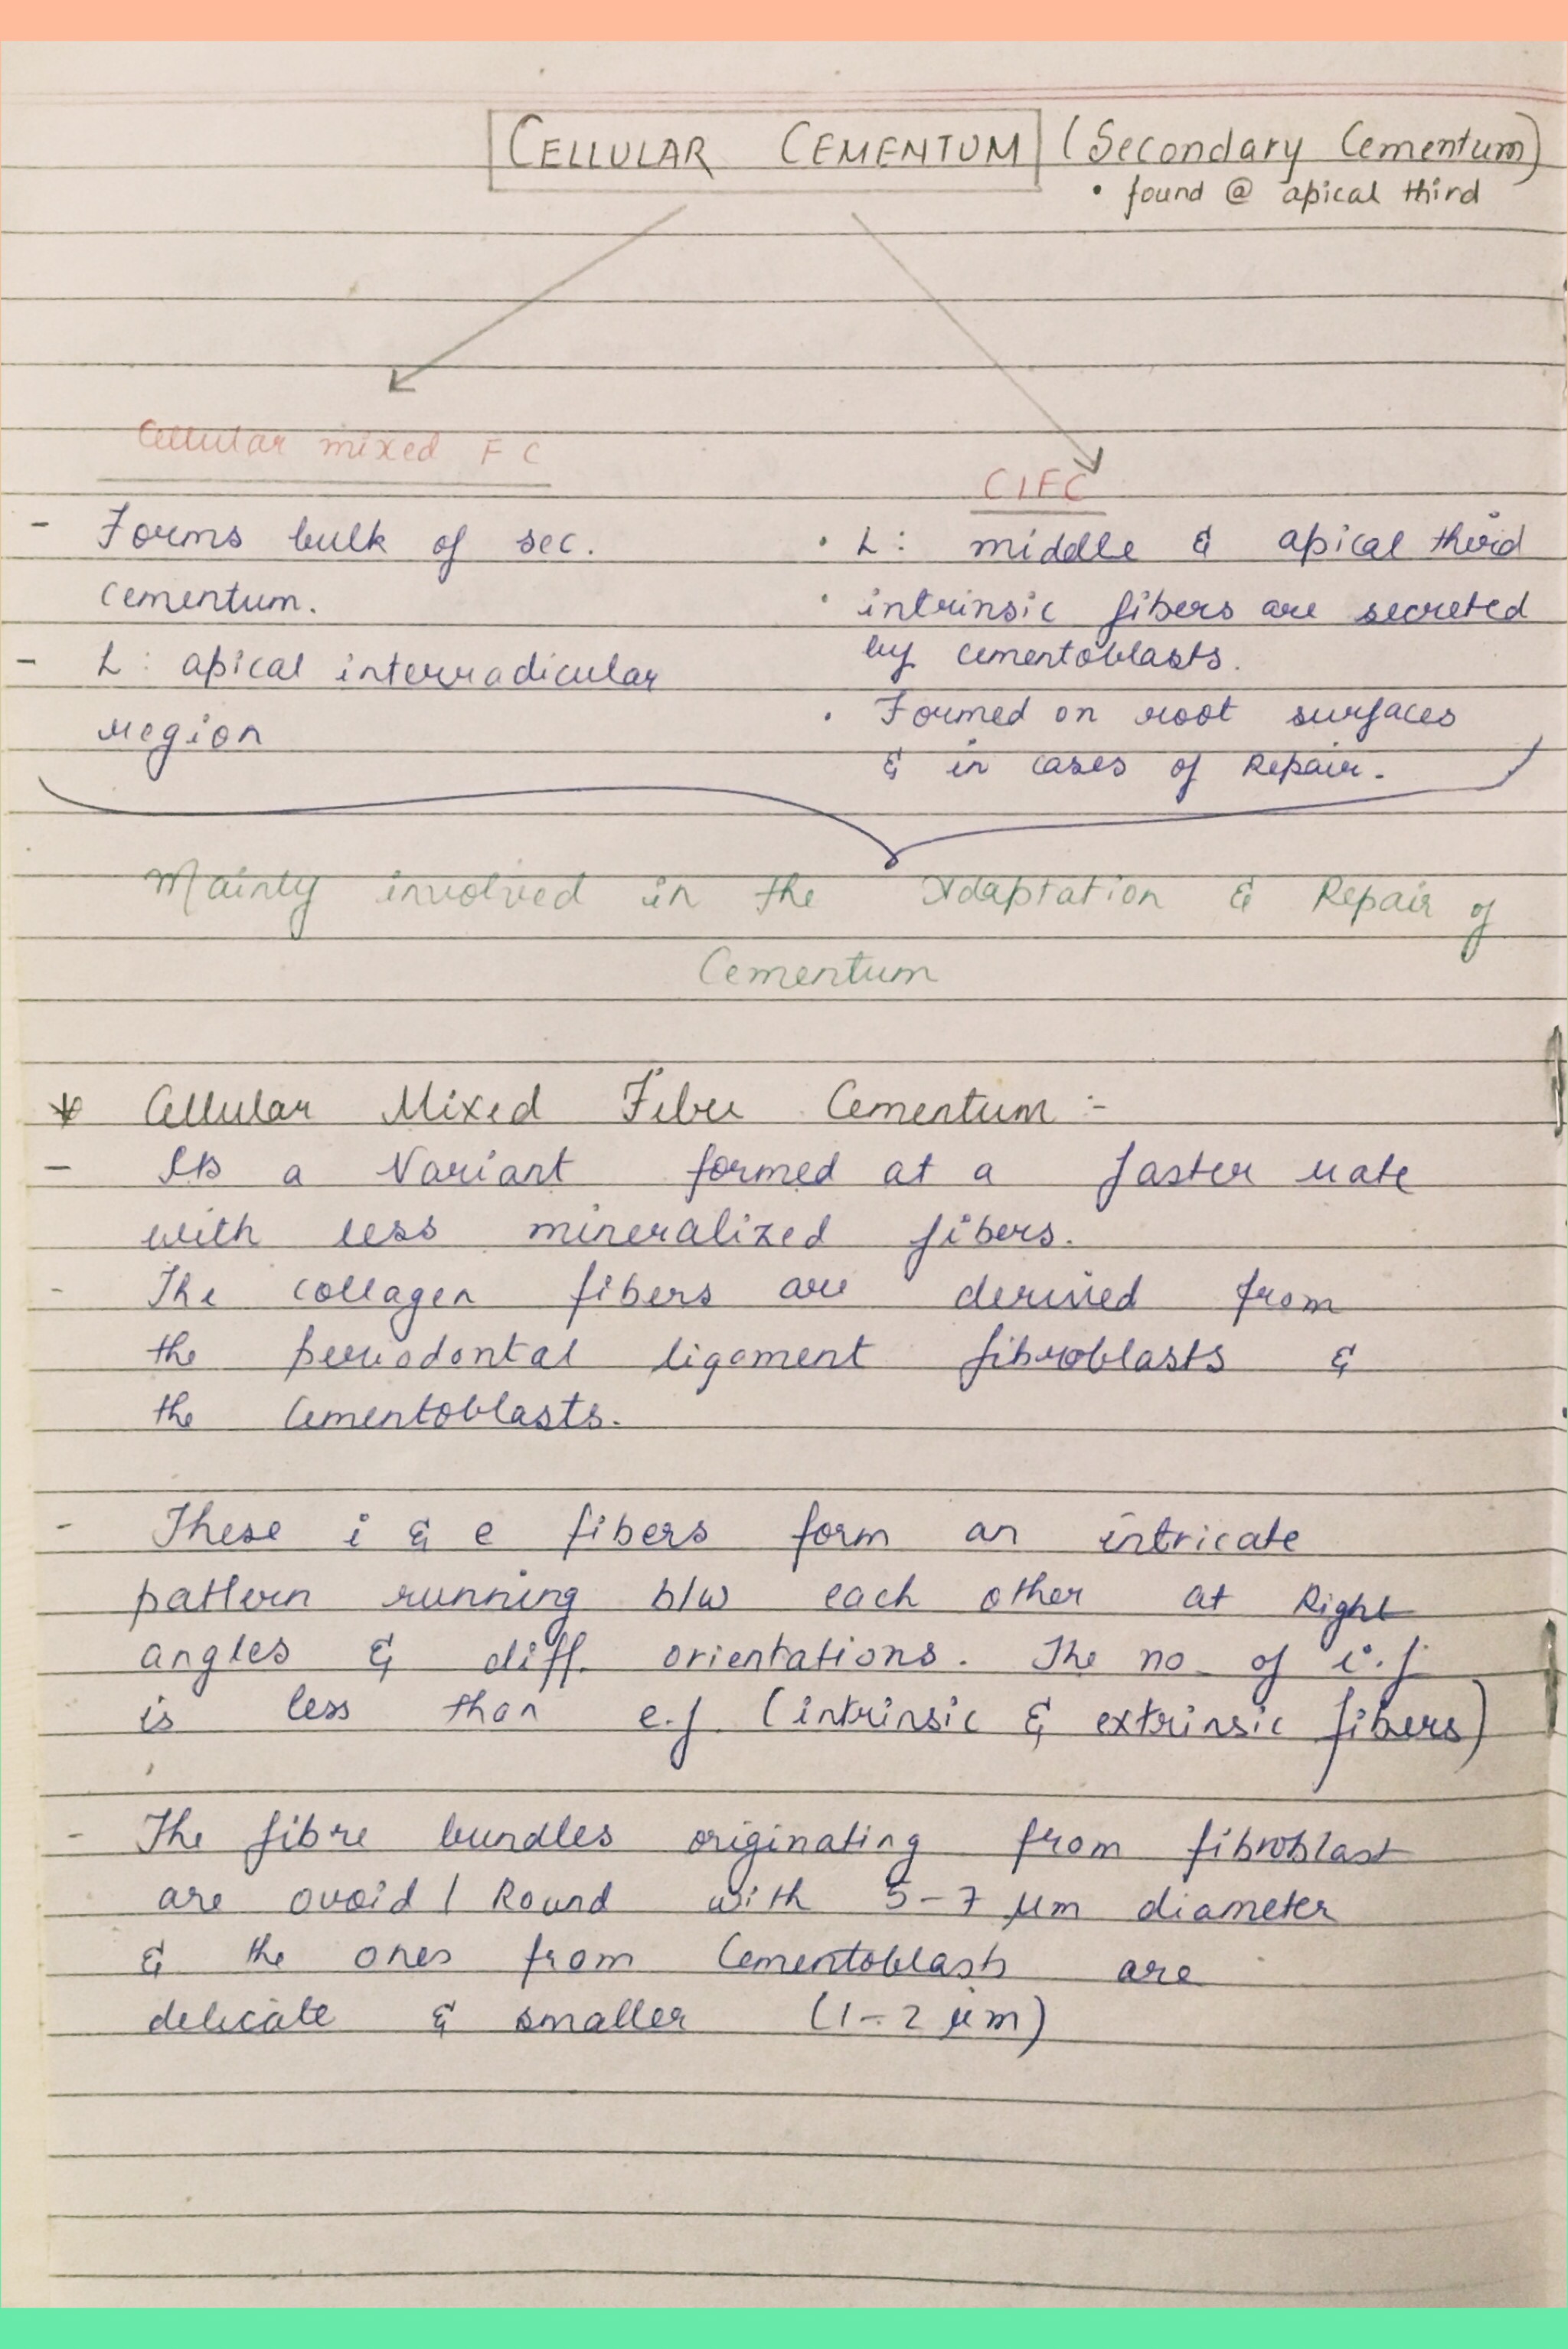 CELLULAR CEMENTUM (Secondary Cementum)
• found @ apical third
Cellular mixed F C
- Forms bulk of sec.
cementum.
- L : apical interradicular
region
CIFC
• L : middle & apical third
• intrinsic fibers are secreted
by cementoblasts.
• Formed on root surfaces
& in cases of Repair.
Mainly involved in the Adaptation & Repair of
Cementum
* Cellular Mixed Fiber Cementum :-
- Its a Variant formed at a faster rate
with less mineralized fibers.
- The collagen fibers are derived from
the periodontal ligament fibroblasts &
the Cementoblasts.
- These i & e fibers form an intricate
pattern running b/w each other at Right
angles & diff. orientations. The no. of i.f
is less than e.f (intrinsic & extrinsic fibers)
- The fibre bundles originating from fibroblast
are ovoid / Round with 5-7 μm diameter
& the ones from Cementoblasts are
delicate & smaller (1-2 μm)